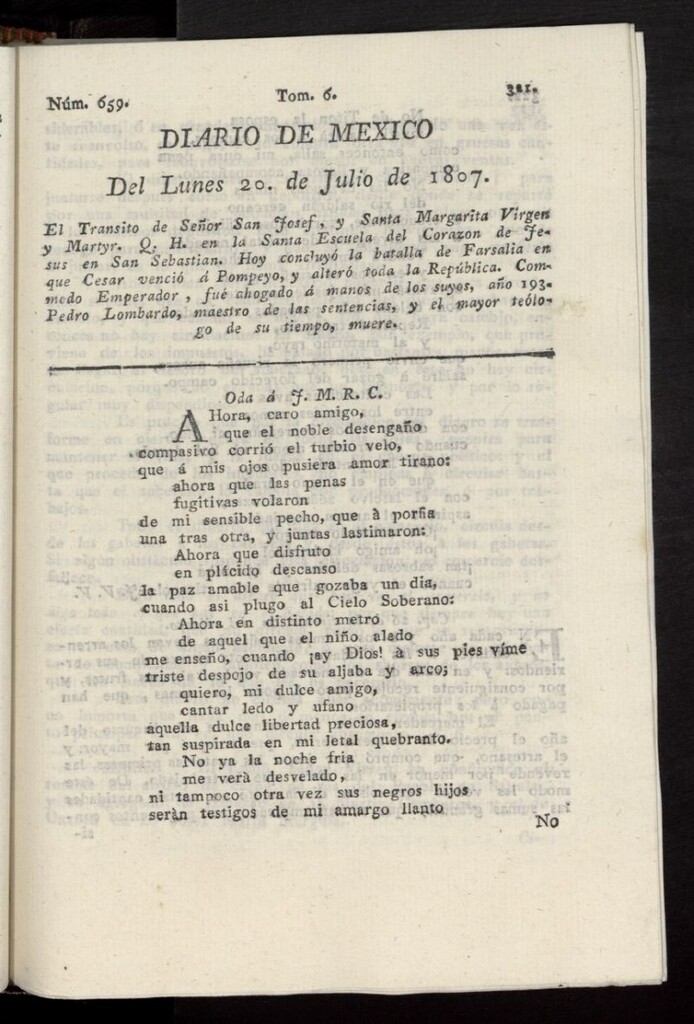 Núm. 659.
Tom. 6.
321.
DIARIO DE MEXICO
Del Lunes 20. de Julio de 1807.
El Transito de Señor San Josef, y Santa Margarita Virgen
y Martyr. Q. H. en la Santa Escuela del Corazon de Je-
sus en San Sebastian. Hoy concluyó la batalla de Farsalia en
que Cesar venció á Pompeyo, y alteró toda la República. Com-
modo Emperador, fué ahogado á manos de los suyos, año 193.
Pedro Lombardo, maestro de las sentencias, y el mayor teólo-
go de su tiempo, muere.
Oda á J. M. R. C.
AHora, caro amigo,
que el noble desengaño
compasivo corrió el turbio velo,
que á mis ojos pusiera amor tirano:
ahora que las penas
fugitivas volaron
de mi sensible pecho, que à porfia
una tras otra, y juntas lastimaron:
Ahora que disfruto
en plácido descanso
la paz amable que gozaba un dia,
cuando asi plugo al Cielo Soberano:
Ahora en distinto metro
de aquel que el niño alado
me enseño, cuando ¡ay Dios! à sus pies víme
triste despojo de su aljaba y arco;
quiero, mi dulce amigo,
cantar ledo y ufano
aquella dulce libertad preciosa,
tan suspirada en mi letal quebranto.
No ya la noche fria
me verà desvelado,
ni tampoco otra vez sus negros hijos
seràn testigos de mi amargo llanto
No